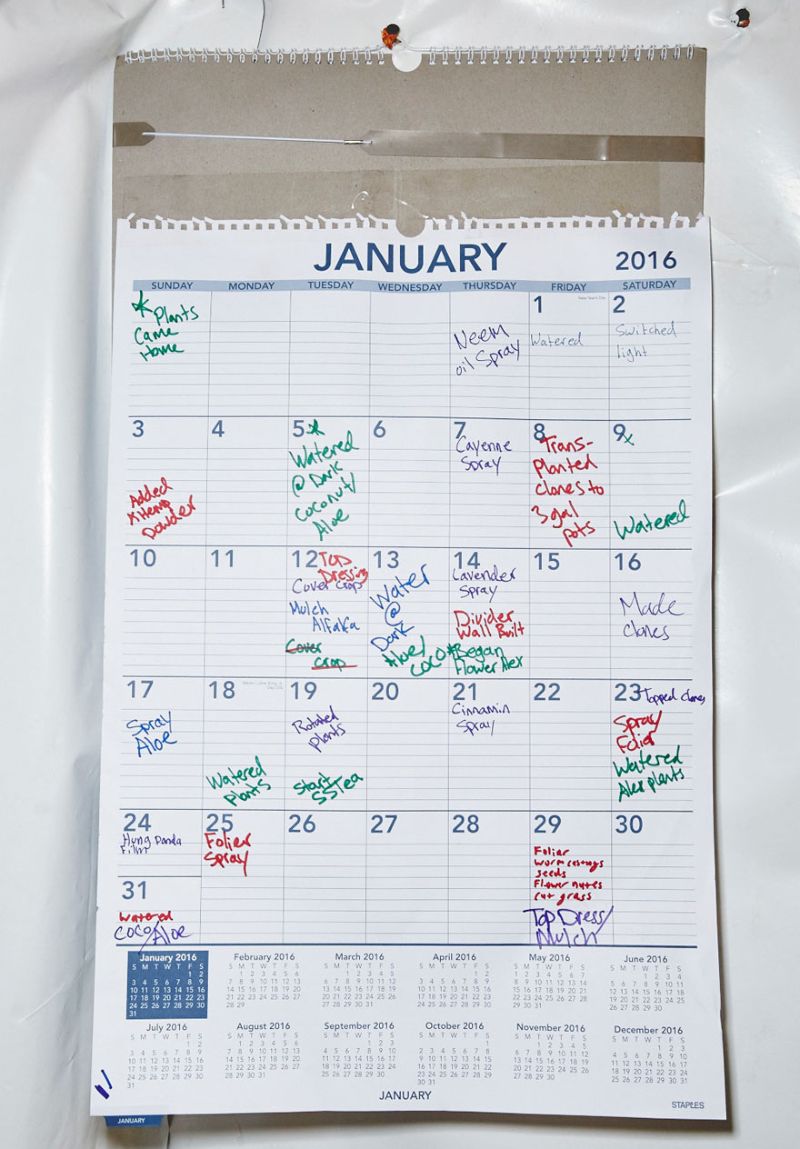 JANUARY
2016
SUNDAY MONDAY TUESDAY WEDNESDAY THURSDAY FRIDAY SATURDAY
Plants
Came
Home
Neem
oil Spray
1
New Year's Day
Watered
2
Switched
light
3
Added
Powder
4
5
Watered
@ Dark
Coconut/
Aloe
6
7
Cayenne
Spray
8
Trans-
Planted
clones to
3 gal
pots
9
Watered
10
11
12
Top
Dressing
Cover Crops
Mulch
Alfalfa
Cover
crop
13
Water
@
Dark
Aloe/
Coco
14
Lavender
Spray
Divider
Wall Built
*Began
Flower Alex
15
16
Made
clones
17
Spray
Aloe
18
Watered
Plants
19
Rotated
plants
Start
SSTea
20
21
Cinnamin
Spray
22
23
Topped clones
Spray
Folier
Watered
Alex plants
24
Hung Panda
Film
31
Watered
COCO/Aloe
25
Folier
Spray
26
27
28
29
Folier
worm castings
seeds
Flower nutes
cut grass
Top Dress/
Mulch
30
January 2016
S M T W T F S
1 2
3 4 5 6 7 8 9
10 11 12 13 14 15 16
17 18 19 20 21 22 23
24 25 26 27 28 29 30
31
February 2016
S M T W T F S
1 2 3 4 5 6
7 8 9 10 11 12 13
14 15 16 17 18 19 20
21 22 23 24 25 26 27
28 29
March 2016
S M T W T F S
1 2 3 4 5
6 7 8 9 10 11 12
13 14 15 16 17 18 19
20 21 22 23 24 25 26
27 28 29 30 31
April 2016
S M T W T F S
1 2
3 4 5 6 7 8 9
10 11 12 13 14 15 16
17 18 19 20 21 22 23
24 25 26 27 28 29 30
May 2016
S M T W T F S
1 2 3 4 5 6 7
8 9 10 11 12 13 14
15 16 17 18 19 20 21
22 23 24 25 26 27 28
29 30 31
June 2016
S M T W T F S
1 2 3 4
5 6 7 8 9 10 11
12 13 14 15 16 17 18
19 20 21 22 23 24 25
26 27 28 29 30
July 2016
S M T W T F S
1 2
3 4 5 6 7 8 9
10 11 12 13 14 15 16
17 18 19 20 21 22 23
24 25 26 27 28 29 30
31
August 2016
S M T W T F S
1 2 3 4 5 6
7 8 9 10 11 12 13
14 15 16 17 18 19 20
21 22 23 24 25 26 27
28 29 30 31
September 2016
S M T W T F S
1 2 3
4 5 6 7 8 9 10
11 12 13 14 15 16 17
18 19 20 21 22 23 24
25 26 27 28 29 30
October 2016
S M T W T F S
1
2 3 4 5 6 7 8
9 10 11 12 13 14 15
16 17 18 19 20 21 22
23 24 25 26 27 28 29
30 31
November 2016
S M T W T F S
1 2 3 4 5
6 7 8 9 10 11 12
13 14 15 16 17 18 19
20 21 22 23 24 25 26
27 28 29 30
December 2016
S M T W T F S
1 2 3
4 5 6 7 8 9 10
11 12 13 14 15 16 17
18 19 20 21 22 23 24
25 26 27 28 29 30 31
JANUARY
STAPLES
JANUARY